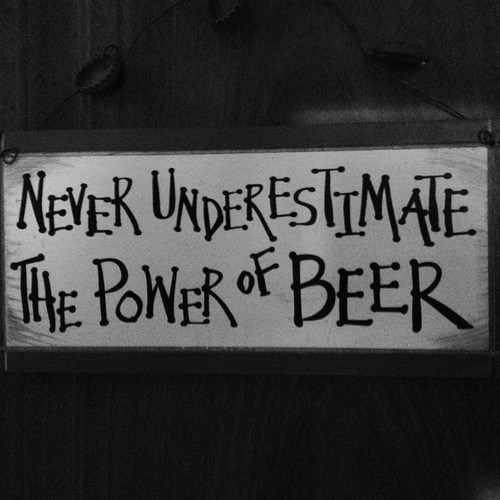 NEVER UNDERESTIMATE
THE POWER OF BEER